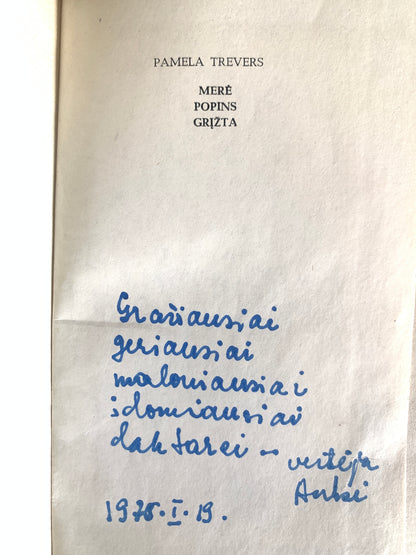 PAMELA TREVERS
MERĖ
POPINS
GRĮŽTA
Gražiausiai
geriausiai
maloniausiai
įdomiausiai
daktarei –
vertėja
1978.I.19.